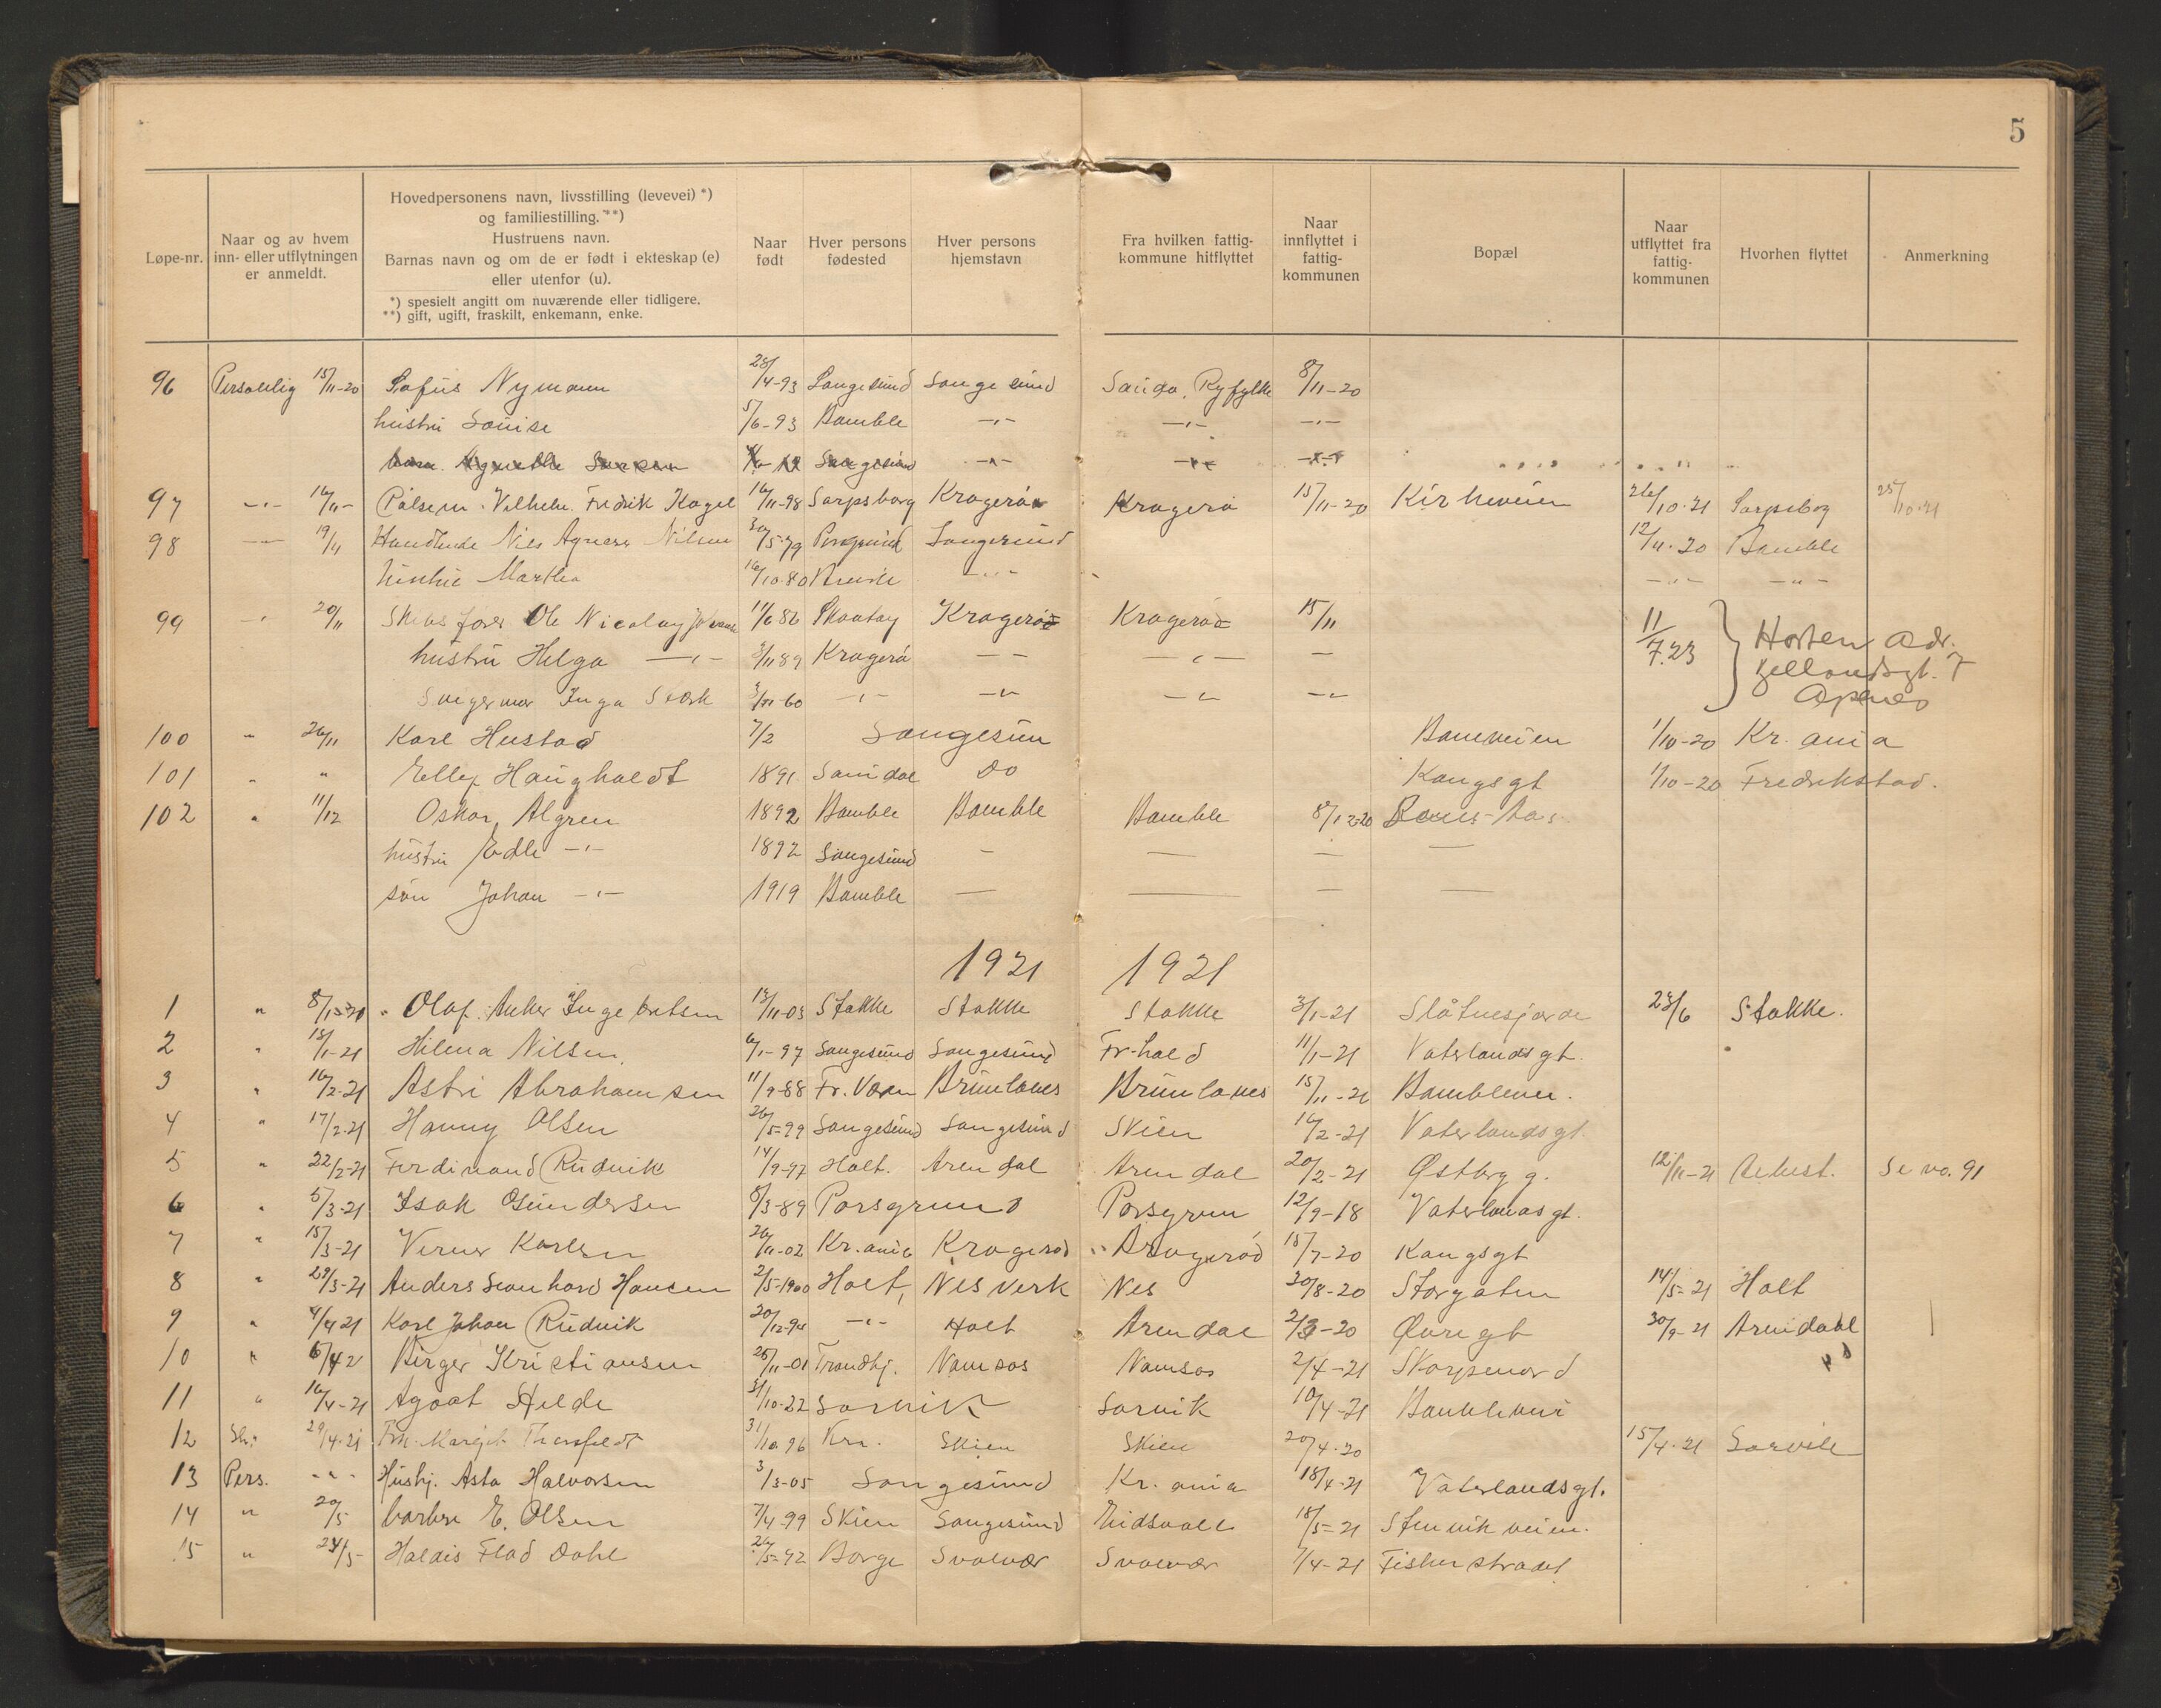 5
Løpe-nr.
Naar og av hvem
inn- eller utflytningen
er anmeldt.
Hovedpersonens navn, livsstilling (levevei) *)
og familiestilling. **)
Hustruens navn.
Barnas navn og om de er født i ekteskap (e)
eller utenfor (u).
*) spesielt angitt om nuværende eller tidligere.
**) gift, ugift, fraskilt, enkemann, enke.
Naar
født
Hver persons
fødested
Hver persons
hjemstavn
Fra hvilken fattig-
kommune hitflyttet
Naar
innflyttet i
fattig-
kommunen
Bopæl
Naar
utflyttet fra
fattig-
kommunen
Hvorhen flyttet
Anmerkning
96 Personlig 15/11-20 Sofus Nymann 28/4-93 Langesund Langesund Sauda, Ryfylke 8/11-20
hustru Louise 5/6-93 Bamble -"- -"- -"-
97 -"- 16/11- Vilhelm Fredrik 16/11-98 Sarpsborg Kragerø Kragerø 15/11-20 Kirkeveien 26/10-21 Sarpsborg 25/10-21
98 -"- 19/11 Nils Agnar Nilsen 30/5-79 Langesund 12/11-20 Bamble
hustru Martha 16/10-80 -"- -"- -"-
99 -"- 20/11 Ole Nicolay 11/6 86 Skaatøy Kragerø Kragerø 15/11 11/7.23 Horten Adr.
hustru Helga -"- 3/11 89 Kragerø -"- -"- - Kjellandsgt. 7
Svigermor Inga Stærk -60 -"- -"- -"- -"- Apenes
100 " 26/11 Karl Hustad 7/2 Langesun Baneveien 1/10-20 Kr.ania
101 " " Haugholdt 1891 Do Kongsgt 1/10-20 Fredrikstad.
102 " 11/12 Oskar Algren 1892 Bamble Bamble Bamble 8/12-20
hustru Edle -"- 1892 Langesund - - - -
søn Johan -"- 1919 Bamble - - - -
1921 1921
1 " Olaf Anker Ingebretsen 13/11-03 Stokke Stokke Stokke 3/1-21 23/6 Stokke.
2 " 13/1-21 Hilma Nilsen 6/1-97 Langesund Langesund Fr-hald 11/1-21 Vaterlandsgt.
3 " 16/2-21 Astri Abrahamsen 11/9-88 Fr. Værn Brunlanes Brunlanes 15/11-21
4 " 17/2-21 Hanny Olsen 26/5-99 Langesund Langesund Skien 16/2-21 Vaterlandsgt.
5 " 22/2-21 Ferdinand Rudvik 14/9-97 Holt. Arendal Arendal 20/2-21 Østbyg. 12/11-21 Se no. 91
6 " 5/3-21 Isak Gundersen 8/3-89 Porsgrund Porsgrun 12/9-18 Vaterlandsgt.
7 " 15/3-21 Verner Karlsen 26/11-02 Kr.ania Kragerød Kragerød 15/7-20 Kongsgt
8 " 29/3-21 Anders Leonhard Hansen 2/5-1900 Holt, Nes verk Nes 20/8-20 Storgaten 14/5-21 Holt
9 " 4/4 21 Karl Johan Rudvik 20/12-94 -"- Holt Arendal 2/3-20 Øvregt 30/9-21 Arendal
10 " 6/4 21 Birger Kristiansen 25/11-01 Trondhj. Namsos Namsos 2/4-21
11 " 16/4-21 Agoat Hilde 31/10-22 Larvik Larvik 10/4-21
12 29/4-21 Frk. Margit 31/10 96 Kra. Skien Skien 20/4-20 15/4-21 Larvik
13 Pers. -"- Hushj. Asta Halvorsen 3/3-05 Langesund Kr.ania 18/4-21 Vaterlandsgt.
14 " 20/5 barber E. Olsen 7/4-99 Skien Langesund Eidsvoll 18/5-21 Stenvikveien.
15 " 24/5- Haldis Flod Dahl 26/5-92 Borge Svolvær Svolvær 7/4-21